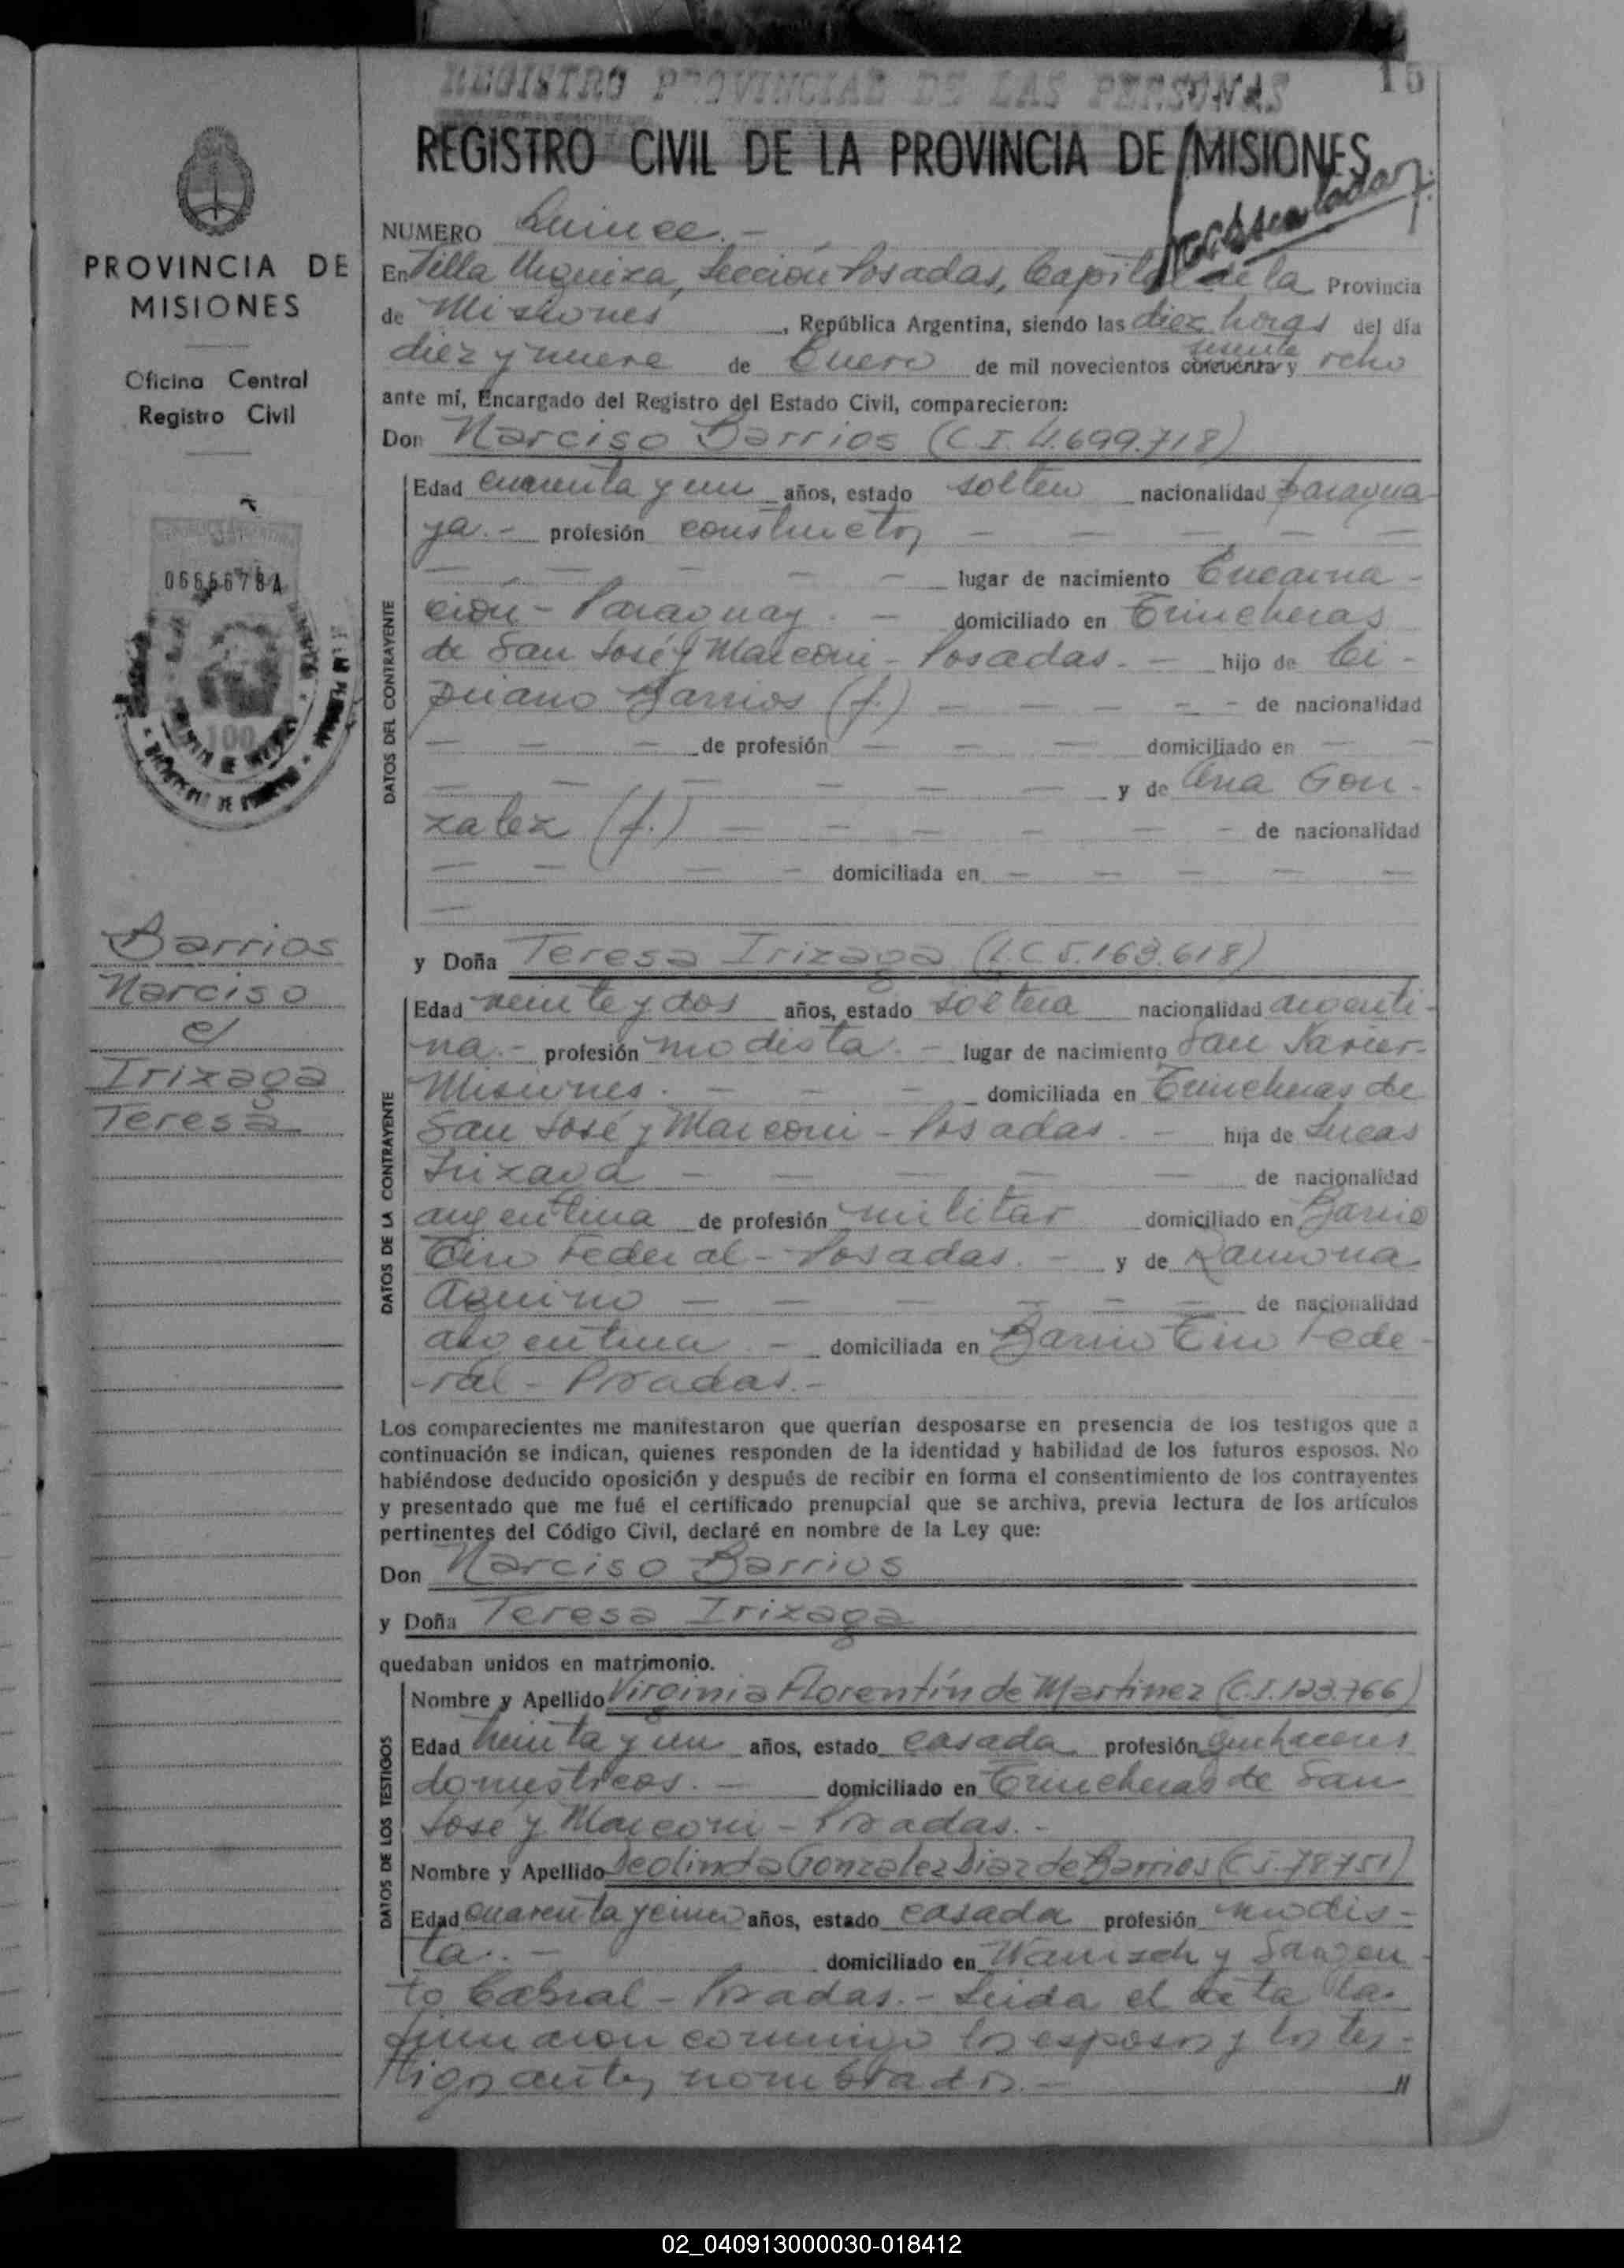 REGISTRO PROVINCIAL DE LAS PERSONAS
15
REGISTRO CIVIL DE LA PROVINCIA DE MISIONES
PROVINCIA DE
MISIONES
Oficina Central
Registro Civil
100
Barrios
Narciso
c/
Irizaga
Teresa
NUMERO Quince.-
En Villa Urquiza, Sección Posadas, Capital de la Provincia
de Misiones, República Argentina, siendo las diez horas del día
diez y nueve de Enero de mil novecientos cincuenta sesenta y ocho
ante mí, Encargado del Registro del Estado Civil, comparecieron:
Don Narciso Barrios (C.I. 4.699.718)
DATOS DEL CONTRAYENTE
Edad cuarenta y un años, estado soltero nacionalidad paragua-
ya.- profesión constructor - - - - -
- - - - - lugar de nacimiento Encarna-
ción - Paraguay. - domiciliado en Trincheras
de San José y Marconi - Posadas. - hijo de Ci-
priano Barrios (f.) - - - - - de nacionalidad
- - - de profesión - - - domiciliado en - -
- - - - - - y de Ana Gon-
zalez (f.) - - - - - - de nacionalidad
- - - - domiciliada en - - - - -
-
y Doña Teresa Irizaga (L.C 5.163.618)
DATOS DE LA CONTRAYENTE
Edad veinte y dos años, estado soltera nacionalidad argenti-
na.- profesión modista. - lugar de nacimiento San Xavier-
Misiones. - - - domiciliada en Trincheras de
San José y Marconi - Posadas. - hija de Lucas
Irizaga - - - - - de nacionalidad
argentina de profesión militar domiciliado en Barrio
Tiro Federal - Posadas. - y de Ramona
Aquino - - - - - - de nacionalidad
argentina. - domiciliada en Barrio Tiro Fede-
ral - Posadas.-
Los comparecientes me manifestaron que querían desposarse en presencia de los testigos que a
continuación se indican, quienes responden de la identidad y habilidad de los futuros esposos. No
habiéndose deducido oposición y después de recibir en forma el consentimiento de los contrayentes
y presentado que me fué el certificado prenupcial que se archiva, previa lectura de los artículos
pertinentes del Código Civil, declaré en nombre de la Ley que:
Don Narciso Barrios
y Doña Teresa Irizaga
quedaban unidos en matrimonio.
DATOS DE LOS TESTIGOS
Nombre y Apellido Virginia Florentín de Martinez (C.I. 123.766)
Edad treinta y un años, estado casada profesión quehaceres
domésticos. - domiciliado en Trincheras de San
José y Marconi - Posadas. -
Nombre y Apellido Deolinda Gonzalez Diaz de Barrios (C.I. 78751)
Edad cuarenta y cinco años, estado casada profesión modis-
ta.. - domiciliado en Wanisch y Sargen-
to Cabral - Posadas. - Leida el acta la
firmaron conmigo los esposos y los tes-
tigos antes nombrados.- //
02_040913000030-018412